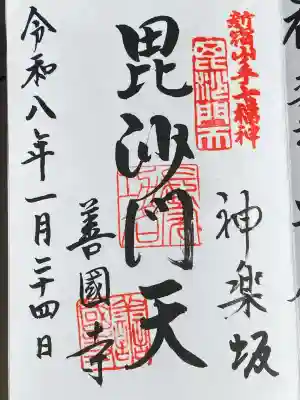 新宿山ノ手七福神
毘沙門天
神楽坂
毘沙門天
善國寺
令和八年一月二十四日